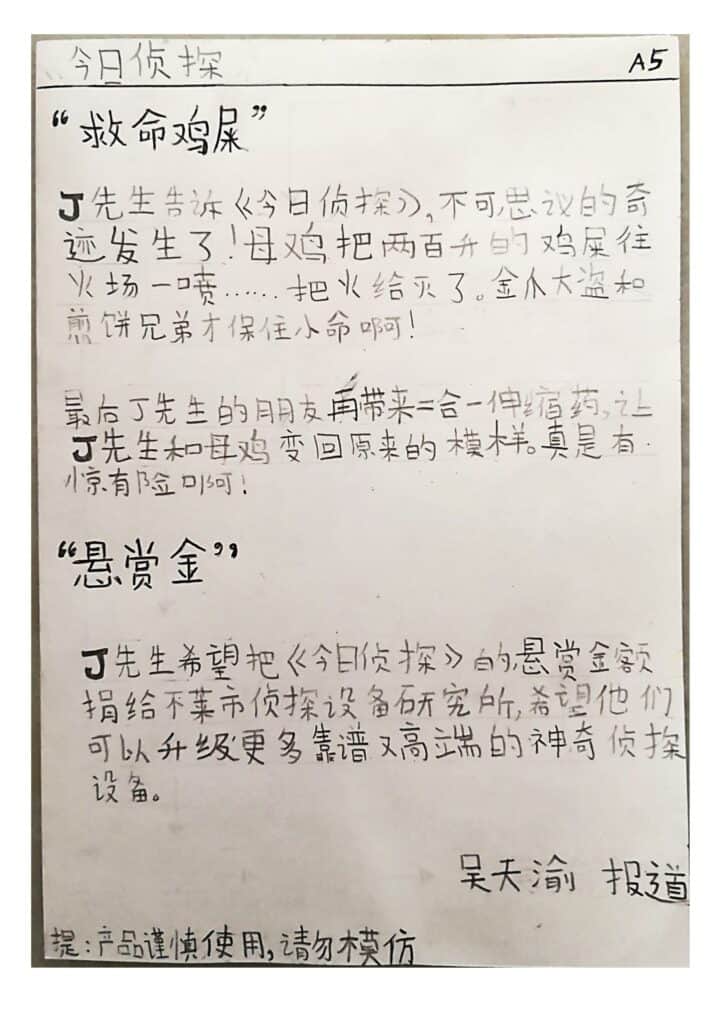 今日侦探
A5
“救命鸡屎”
J先生告诉《今日侦探》,不可思议的奇
迹发生了!母鸡把两百升的鸡屎往
火场一喷……把火给灭了。金爪大盗和
煎饼兄弟才保住小命啊!
最后J先生的朋友再带来二合一伸缩药,让
J先生和母鸡变回原来的模样。真是有
惊有险啊!
“悬赏金”
J先生希望把《今日侦探》的悬赏金额
捐给不莱市侦探设备研究所,希望他们
可以升级更多靠谱又高端的神奇侦探
设备。
吴天渝 报道
提:产品谨慎使用,请勿模仿